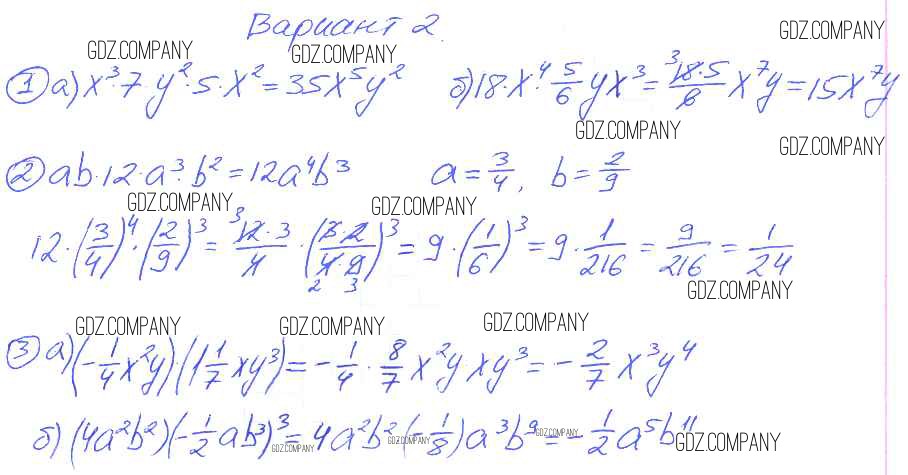 Вариант 2.
GDZ.COMPANY
GDZ.COMPANY GDZ.COMPANY
① а) x³·7·y²·5·x² = 35x⁵y² б) 18·x⁴·5/6 yx³ = 18·5/6 x⁷y = 15x⁷y
GDZ.COMPANY
GDZ.COMPANY
② ab·12·a³·b² = 12a⁴b³ a = 3/4, b = 2/9
GDZ.COMPANY GDZ.COMPANY
12·(3/4)⁴·(2/9)³ = 12·3/4·(3·2/4·9)³ = 9·(1/6)³ = 9·1/216 = 9/216 = 1/24
GDZ.COMPANY
GDZ.COMPANY GDZ.COMPANY GDZ.COMPANY
③ а) (-1/4 x²y)(1 1/7 xy³) = -1/4·8/7 x²y xy³ = -2/7 x³y⁴
б) (4a²b²)(-1/2 ab³)³ = 4a²b²(-1/8)a³b⁹ = -1/2 a⁵b¹¹
GDZ.COMPANY GDZ.COMPANY GDZ.COMPANY GDZ.COMPANY